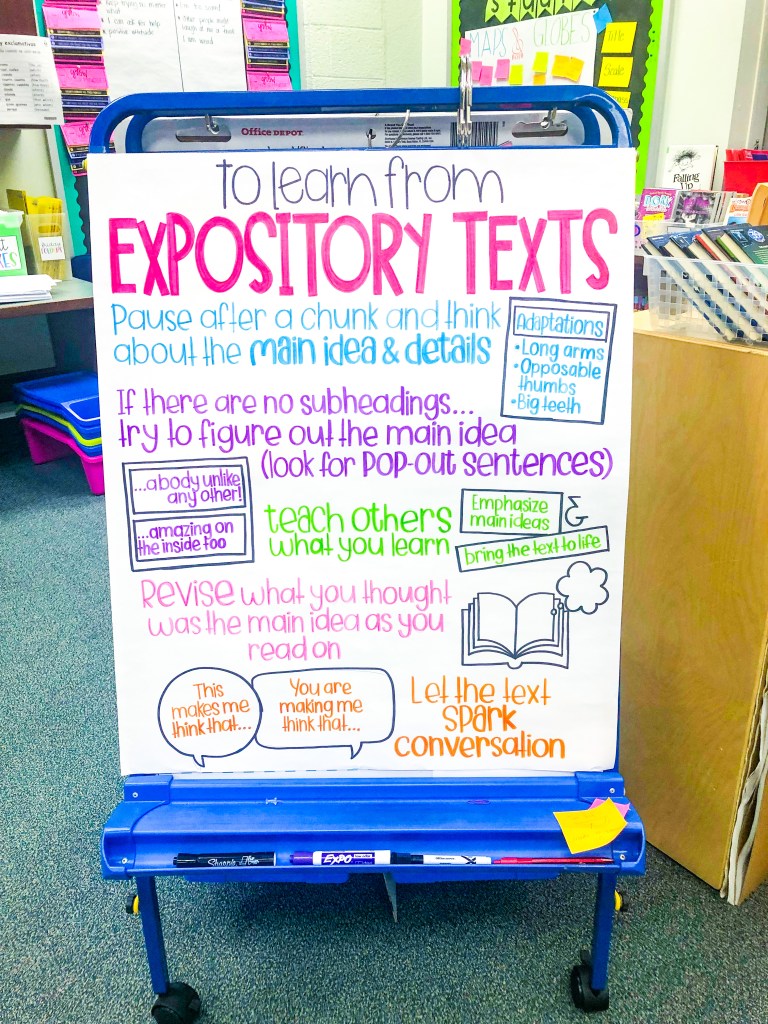 MAPS & GLOBES
Title
Scale
OFFICE DEPOT
Falling
Up
to learn from
EXPOSITORY TEXTS
Pause after a chunk and think
about the main idea & details
Adaptations
• Long arms
• Opposable
thumbs
• Big teeth
If there are no subheadings...
try to figure out the main idea
(look for POP-out sentences)
...a body unlike
any other!
...amazing on
the inside too
teach others
what you learn
Emphasize
main ideas
&
bring the text to life
Revise what you thought
was the main idea as you
read on
This
makes me
think that...
You are
making me
think that...
Let the text
spark
conversation
Sharpie
EXPO